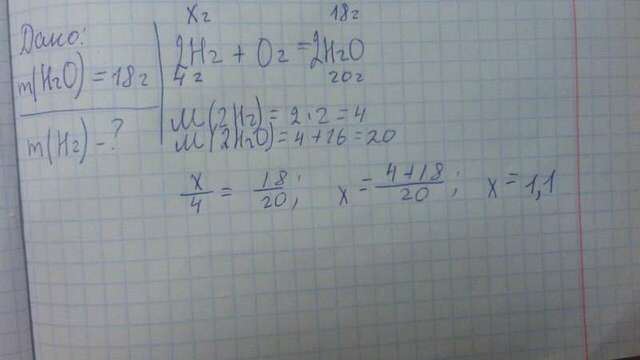 Дано:
m(H₂O) = 18г
m(H₂) - ?
xг 18г
2H₂ + O₂ = 2H₂O
4г 20г
M(2H₂) = 2·2 = 4
M(2H₂O) = 4+16 = 20
x/4 = 18/20; x = 4+18/20; x = 1,1